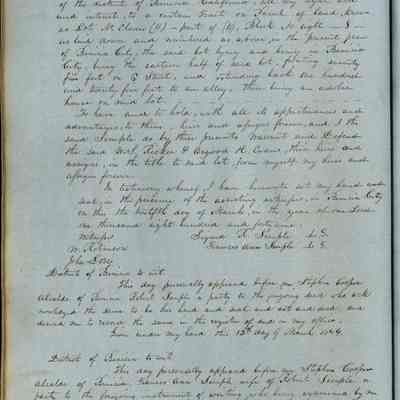 of the district of Benicia California, all my right and
and interest, to a certain tract or parcel of land, known
as Lot No. Eleven (11) - part of (10), Block No eight - 8 -
as laid down and numbered as above, in the present plan
of Benicia City; the said lot lying and being in Benicia
City, being the eastern half of said lot, fronting seventy
five feet on G Street, and extending back one hundred
and twenty five feet to an alley, there being an adobe
house on said lot.
To have and to hold, with all its appurtenances and
advantages, to them, heirs and assigns forever, and I the
said Semple do by these presents Warrant and Defend
the said Evans, their heirs and
assigns, in the title to said lot, from myself my heirs and
assigns forever.
In testimony whereof I have hereunto set my hand and
seal, in the presence of the witnesses, in Benicia City
on this the twelfth day of March, in the year of our Lord
one thousand eight hundred and forty nine.
Witness Signed R. Semple L.S.
W. Robinson Frances Ann Semple L.S.
John
District of Benicia to wit.
This day personally appeared before me Stephen Cooper
Alcalde of Benicia Robert Semple a party to the foregoing and who ack
nowledged the same to be his hand and seal and act and deed and
desired me to record the same in the register of in my office.
Given under my hand this 12th day of March 1849.
District of Benicia to wit.
This day personally appeared before me, Stephen Cooper
Alcalde of Benicia, Frances Ann Semple wife of Robert Semple a
party to the foregoing instrument of writing who being examined by me